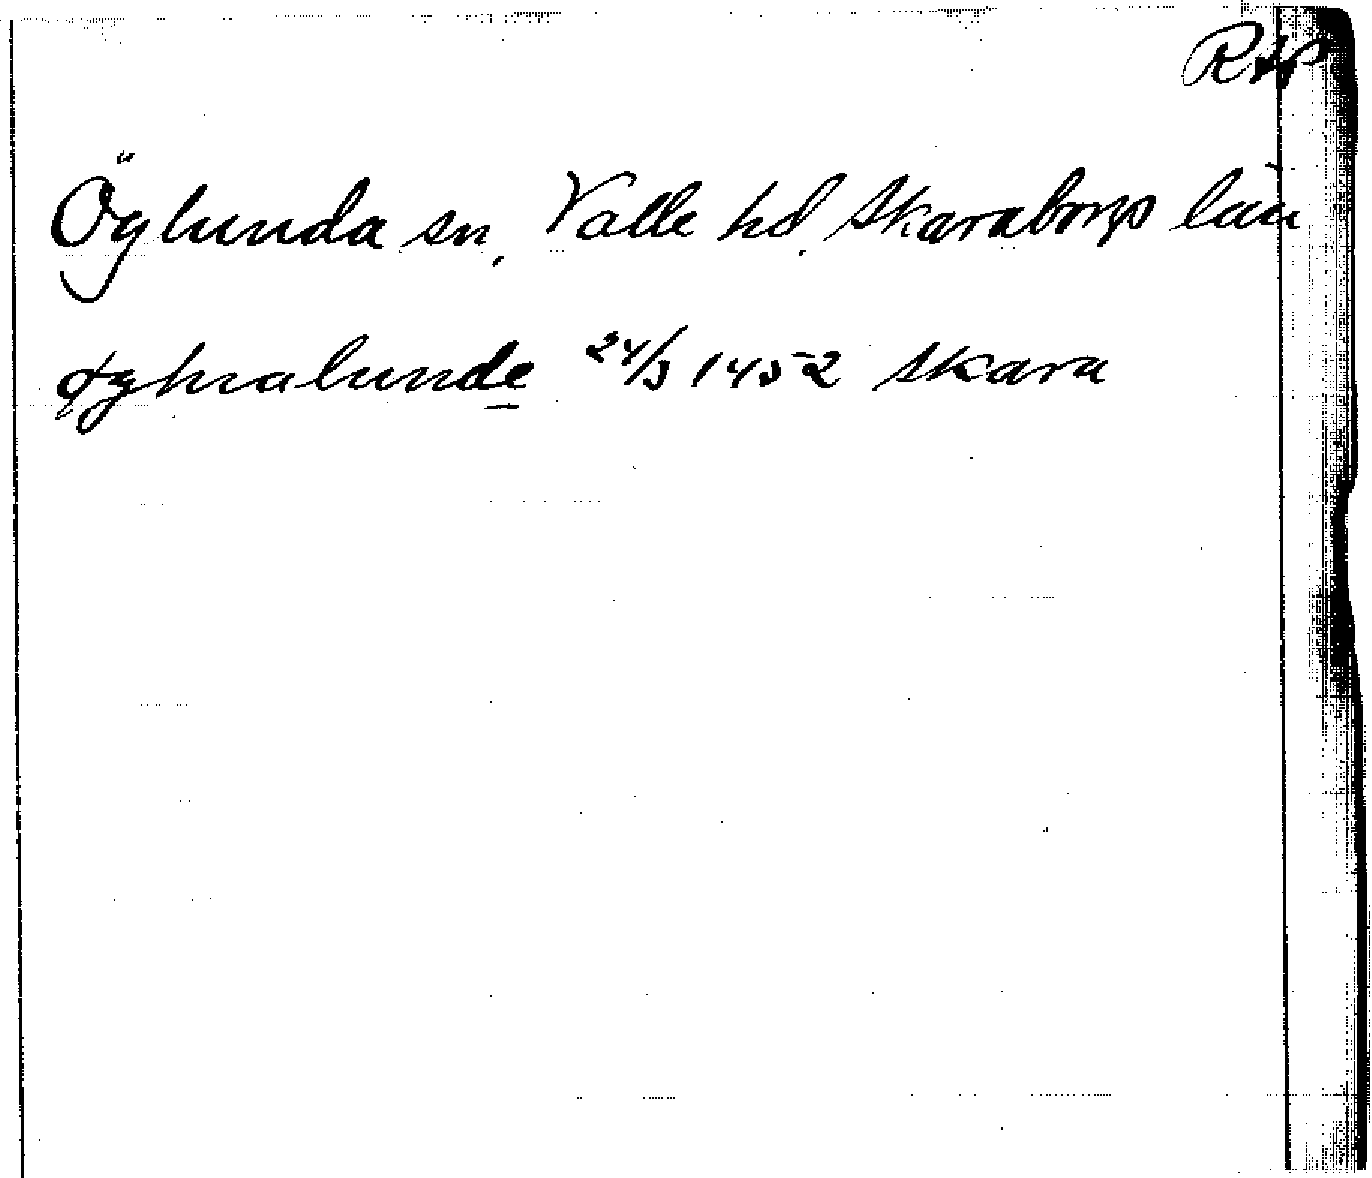 Öglunda sn, Valle hd. Skaraborgs län
øghralunde 24/3 1452 Skara